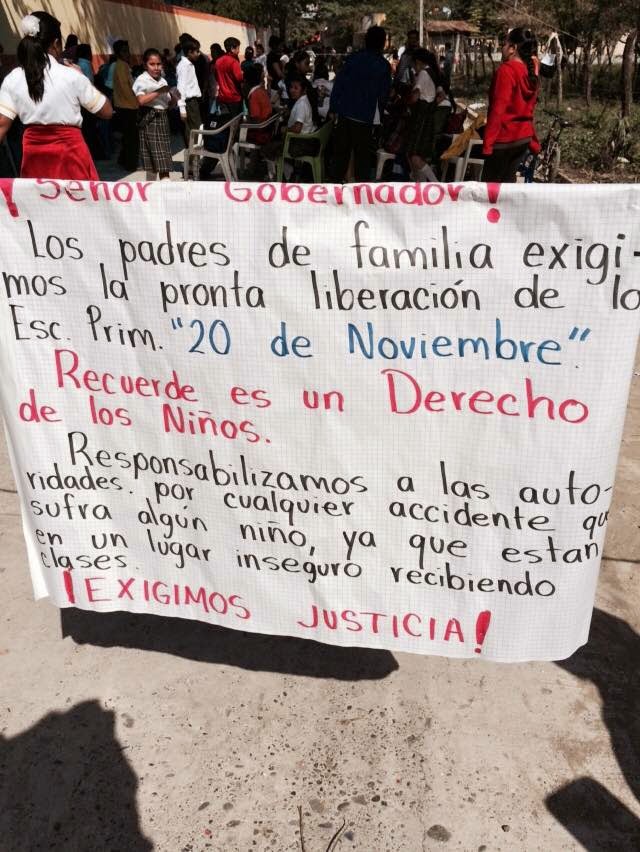 ¡Señor Gobernador!
Los padres de familia exigi-
mos la pronta liberación de la
Esc. Prim. "20 de Noviembre".
Recuerde es un Derecho
de los Niños.
Responsabilizamos a las auto-
ridades. por cualquier accidente que
sufra algún niño, ya que estan
en un lugar inseguro recibiendo
clases.
¡EXIGIMOS JUSTICIA!